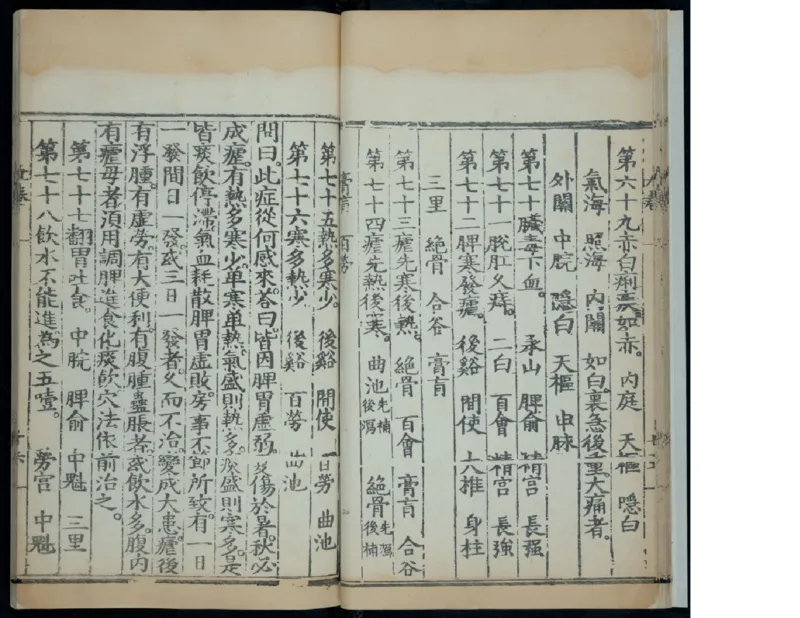 第六十九赤白痢疾如赤。內庭 天樞 隱白
氣海 照海 內關 如白裏急後重。大痛者。
外關 中脘 隱白 天樞 申脉
第七十臟毒下血。 承山 脾俞 精宮 長强
第七十一脫肛久痔。 二白 百會 精宮 長強
第七十二脾寒發瘧。 後谿 間使 大椎 身柱
三里 絶骨 合谷 膏肓
第七十三瘧先寒後熱。 絶骨 百會 膏肓 合谷
第七十四瘧先熱後寒。 曲池先補後瀉 絶骨先瀉後補
膏肓 百勞
第七十五熱多寒少。 後谿 間使 百勞 曲池
第七十六寒多熱少 後谿 百勞 曲池
問曰。此症從何感來。荅曰。皆因脾胃虛弱。夏傷於暑。秋必
成瘧。有熱多寒少。單寒單熱。氣盛則熱多。痰盛則寒多。是
皆痰飲停滯。氣血耗散。脾胃虛敗。房事不節所致。有一日
一發。間日一發。或三日一發者。久而不治。變成大患。瘧後
有浮腫。有虛勞。有大便利。有腹腫蠱脹者。或飲水多。腹內
有瘧母者。須用調脾進食化痰飲。穴法依前治之。
第七十七翻胃吐食。 中脘 脾俞 中魁 三里
第七十八飲水不能進。為之五噎。 勞宮 中魁